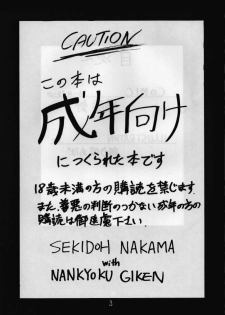 CAUTION
この本は
成年向け
につくられた本です
18歳未満の方の購読を禁じます
また、善悪の判断のつかない成年の方の
購読は御遠慮下さい.
SEKIDOH NAKAMA
with
NANKYOKU GIKEN
3